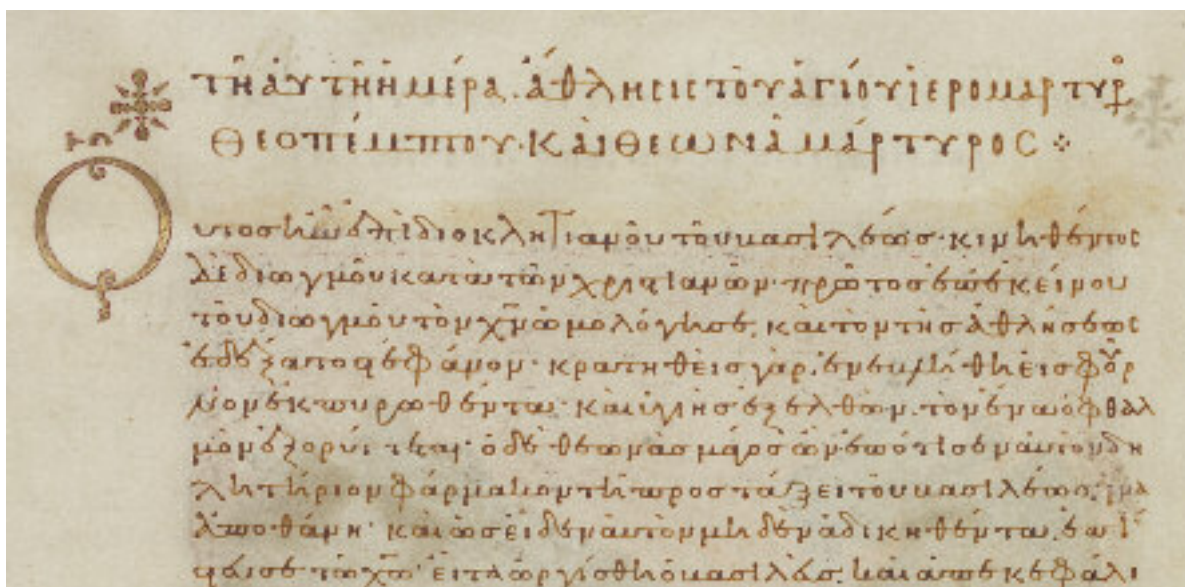 τῆ αὐτῆ ἡμέρα. ἄθλησις τοῦ ἁγίου ἱερομάρτυρ
Θεοπέμπτου. καὶ Θεωνᾶ μάρτυρος
Οὗτος ἦν ἐπὶ διοκλητιανοῦ τοῦ βασιλέως· κινηθέντος
δὲ διωγμοῦ κατὰ τῶν χριστιανῶν. πρῶτος ἐπ ἐκείνου
τοῦ διωγμοῦ τὸν χν ὡμολόγησε, καὶ τὸν τῆς ἀθλήσεως
ἐδέξατο στέφανον· κρατηθεὶς γὰρ. ἐνεβλήθη εἰς φοῦρ
νον ἐκπυρωθέντα· καὶ ὑγιὴς ἐξελθὼν. τὸν ἕνα ὀφθαλ
μὸν ἐξορύττεται· ὁ δὲ θεωνᾶς μάγος ὢν ἐπότισεν αὐτὸν δη
λητήριον φάρμακον τῆ προστάξει τοῦ βασιλέως, ἵνα
ἀποθάνη· καὶ ὡς εἶδεν αὐτὸν μηδὲν ἀδικηθέντα, ἐπί
στευσε τῶ χω· εἶτα ὀργισθεὶς ὁ βασιλεὺς, καὶ ἀπεκεφάλι